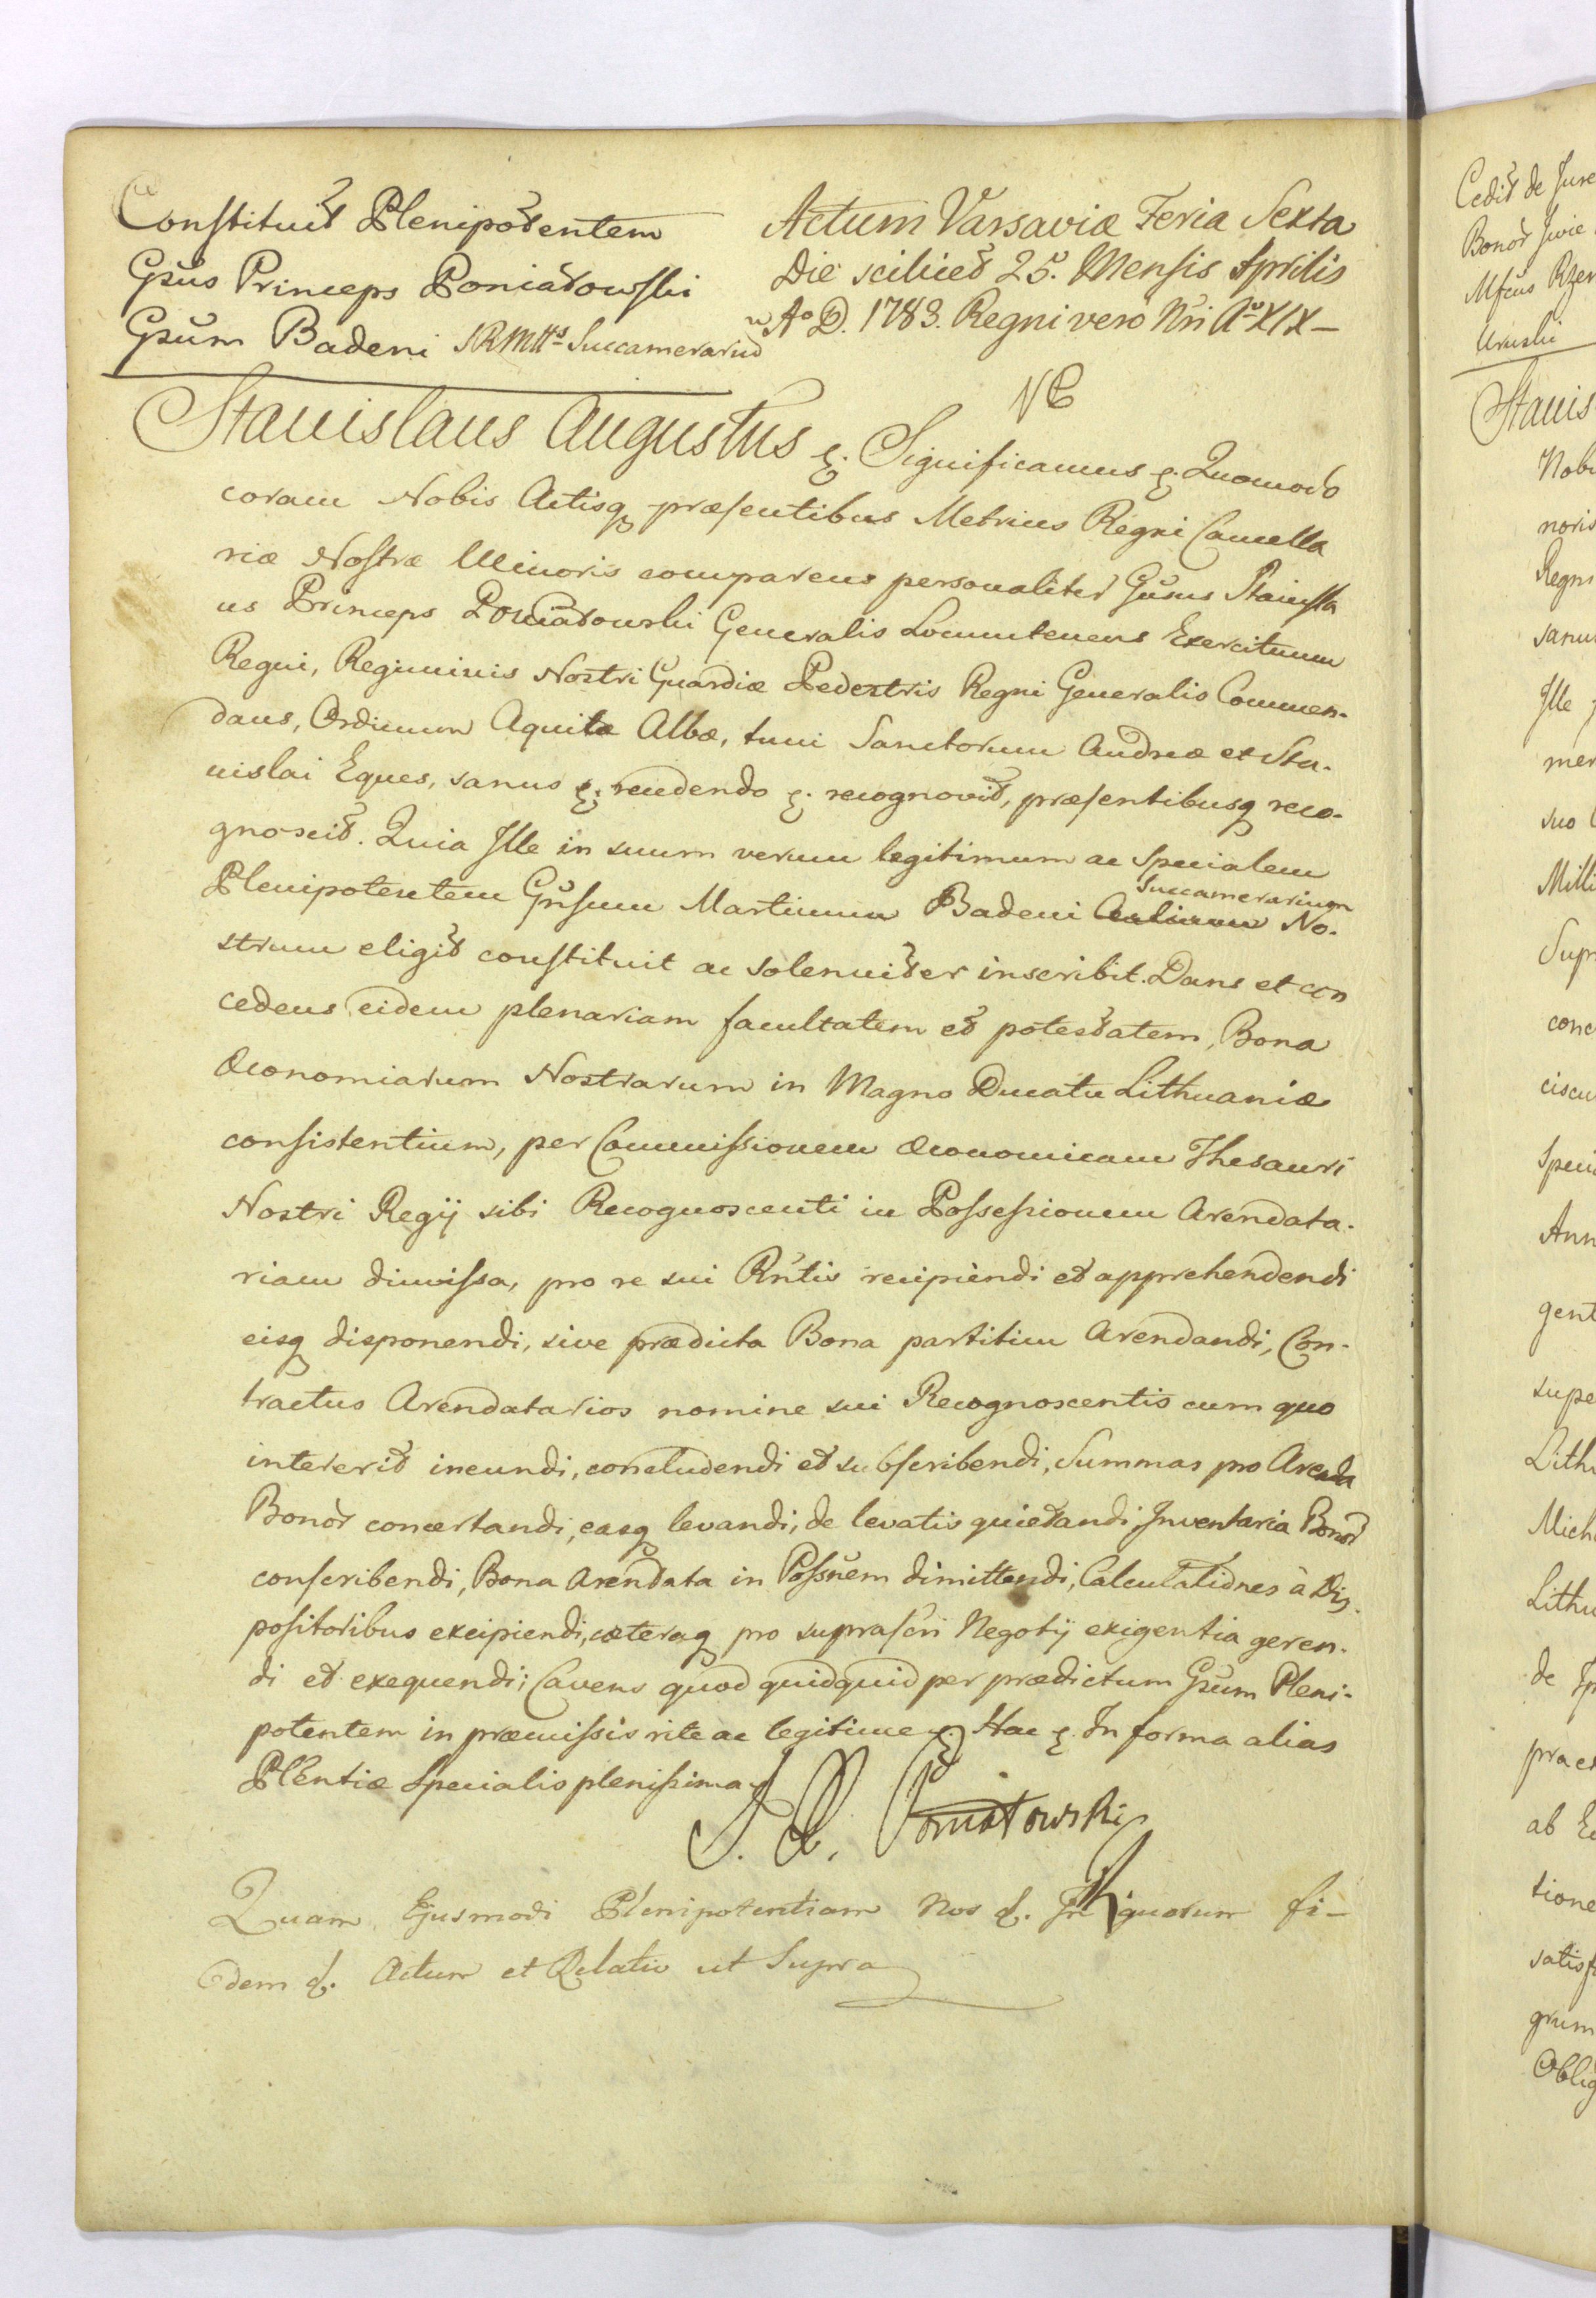 Constituit Plenipotentem
Gsus Princeps Poniatowski
Gsum Badeni SRMttis Succamerariũ
Actum Varsaviæ Feria Sexta
Die scilicet 25. Mensis Aprilis
Aº D. 1783. Regni vero Nri Aº XIX –
Stanislaus Augustus &. Significamus &. Quomodo
coram Nobis Actisq præsentibus Metrices Regni Cancella
riæ Nostræ Minoris comparens personaliter Gusus Stanisla
us Princeps Poniatowski Generalis Locumtenens Exercituum
Regni, Regiminis Nostri Guardiæ Pedestris Regni Generalis Commen-
dans, Ordinum Aquilæ Albæ, tum Sanctorum Andreæ et Sta-
nislai Eques, sanus &. recedendo &. recognovit, præsentibusq reco-
gnoscit. Quia Ille in suum verum legitimum ac specialem
Plenipotentem Gnsum Martinum Badeni Succamerarium No-
strum eligit constituit ac solenniter inscribit. Dans et con
cedens eidem plenariam facultatem et potestatem, Bona
Œconomiarum Nostrarum in Magno Ducatu Lithuaniæ
consistentium, per Commissionem Œconomicam Thesauri
Nostri Regij sibi Recognoscenti in Possessionem Arendata-
riam dimissa, pro re sui Rntis recipiendi et apprehendendi
eisq disponendi, sive prædicta Bona partitim Arendandi, Con-
tractus Arendatarios nomine sui Recognoscentis cum quo
intererit ineundi, concludendi et subscribendi, Summas pro Arenda
Bonor concertandi, easq levandi, de levatis quietandi, Inventaria Bonor
conscribendi, Bona Arendata in Possnem dimittendi, Calculationes à Dis-
positoribus excipiendi, cæteraq pro suprascri Negotij exigentia geren-
di et exequendi; Cavens quod quidquid per prædictum Gsum Pleni-
potentem in præmissis rite ac legitime &. Hac &. In forma alias
Plentiæ Specialis plenissima
S. P. Poniatowski
Quam Ejusmodi Plenipotentiam Nos &. In quorum fi-
dem &. Actum et Relatio ut Supra
Cedit de Jure
Stanis